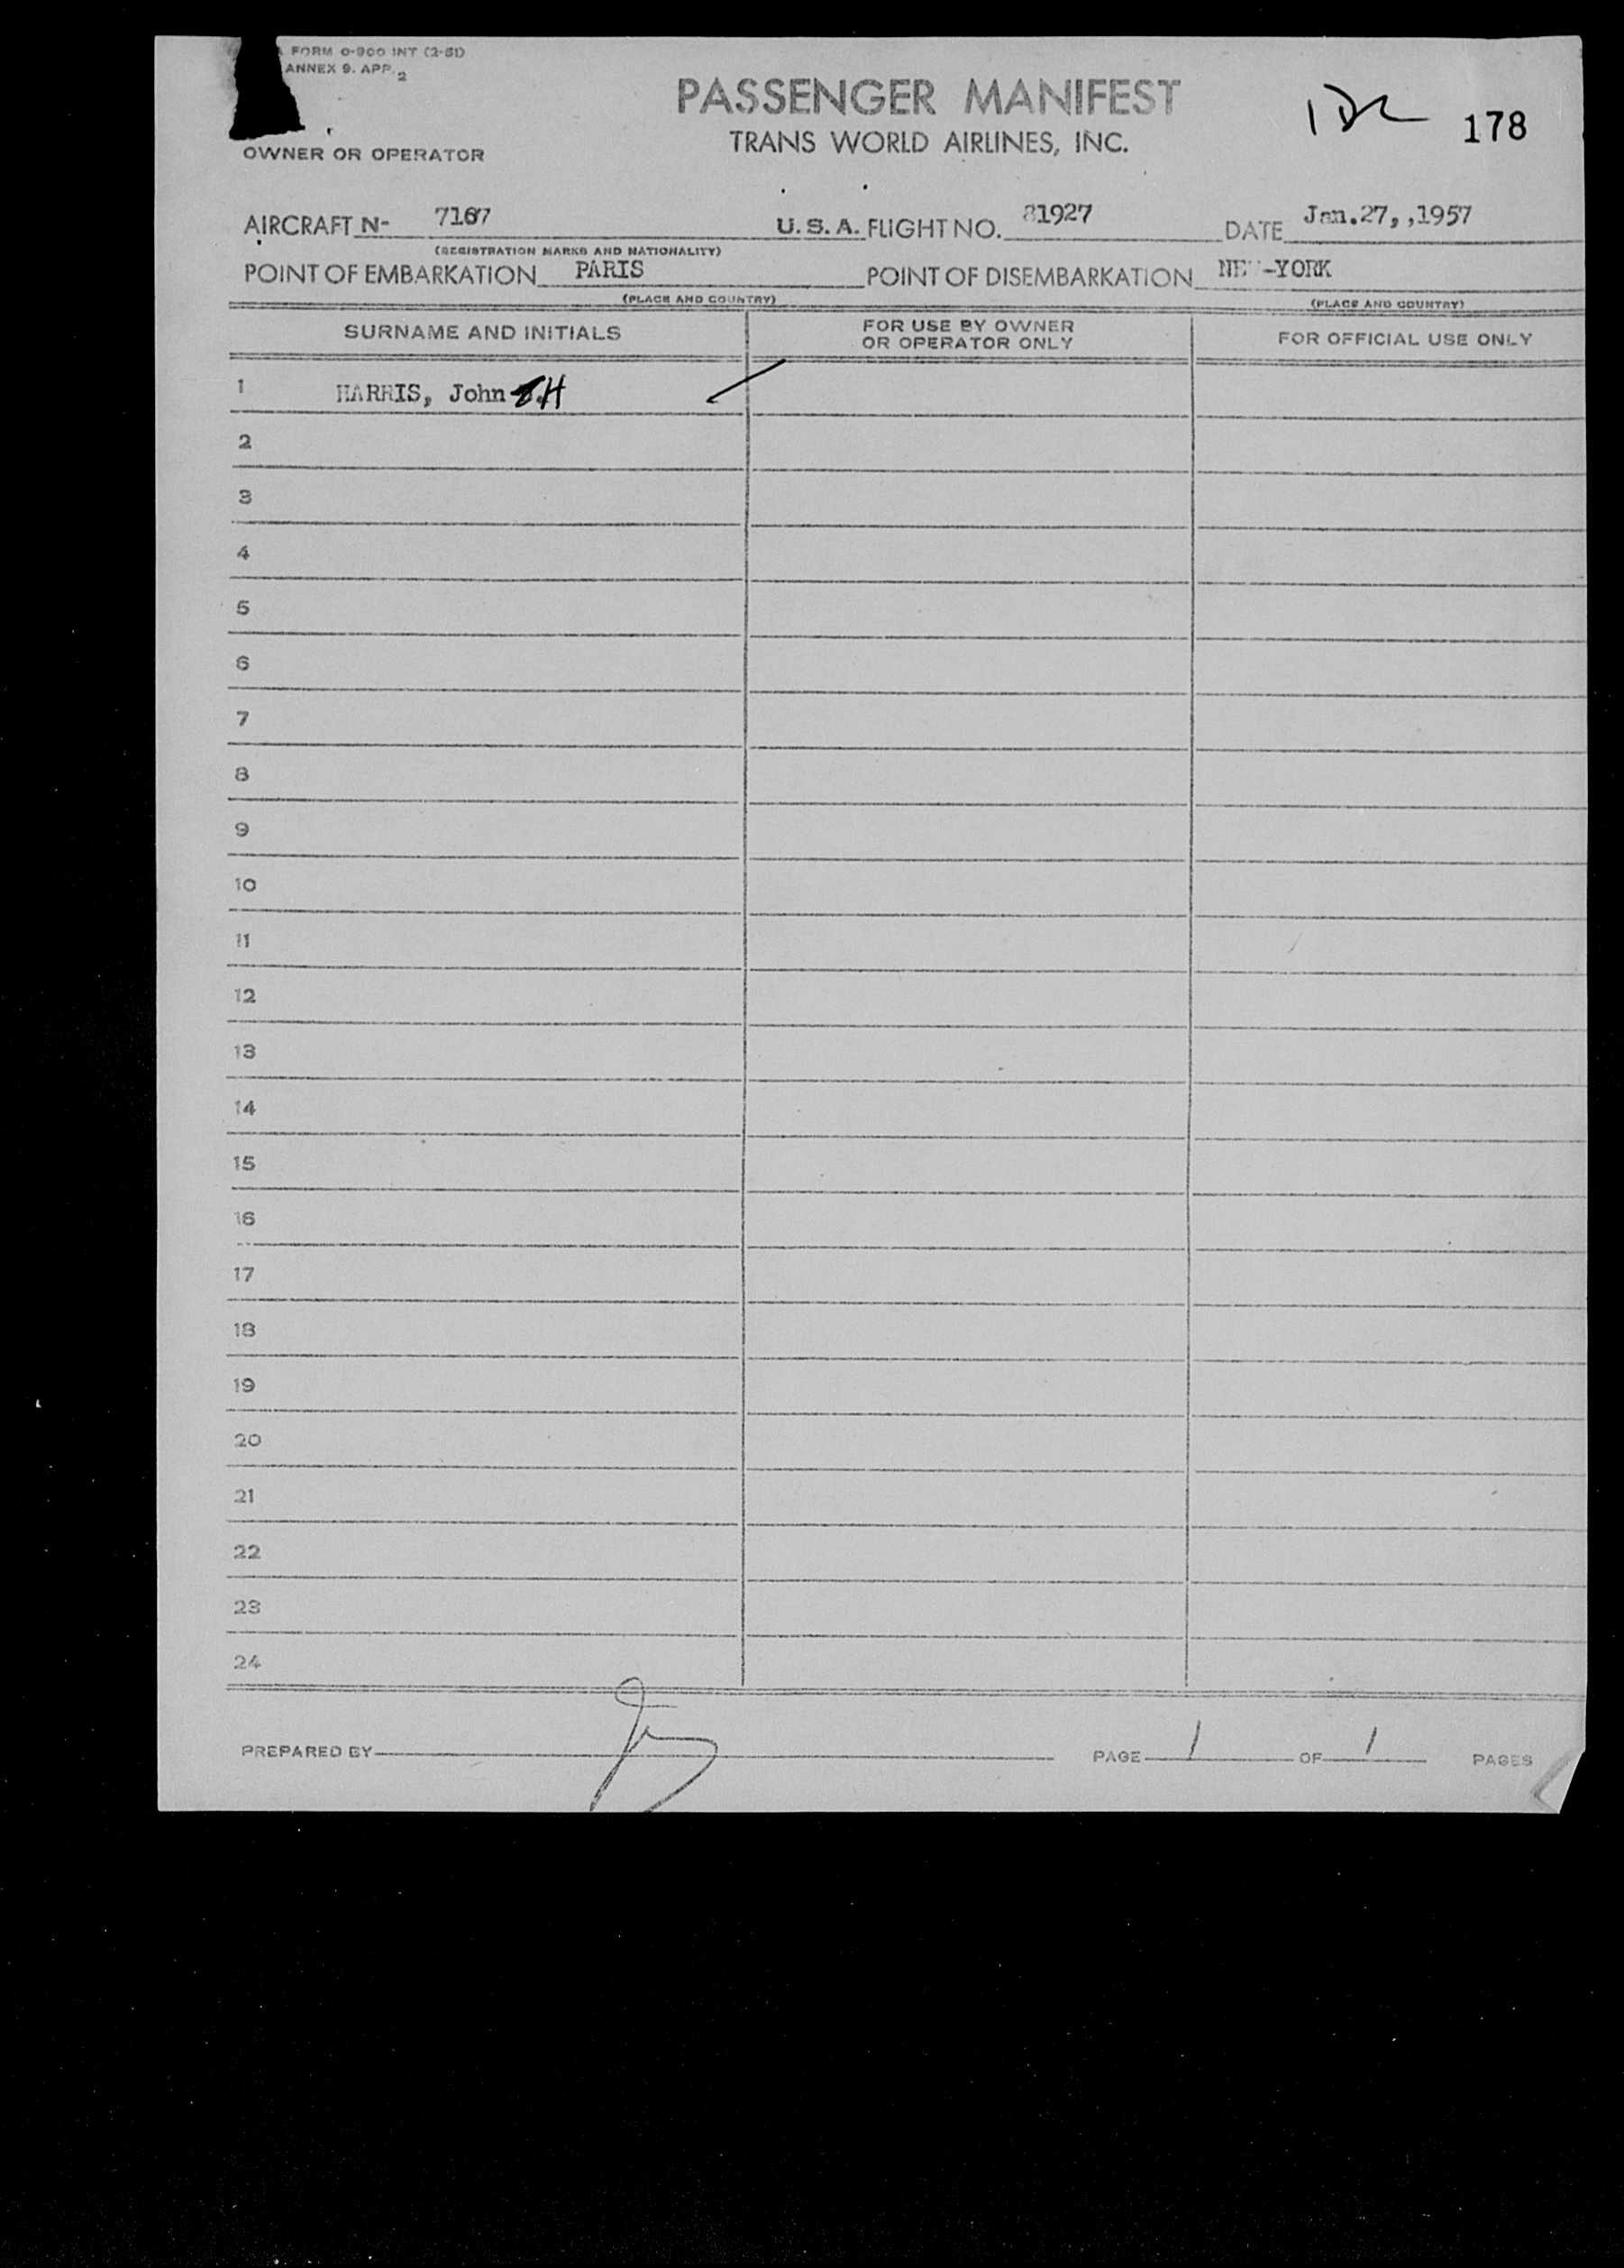 FORM O-900 INT (2-51)
ANNEX 9. APP. 2
PASSENGER MANIFEST
178
TRANS WORLD AIRLINES, INC.
OWNER OR OPERATOR
AIRCRAFT N- 7167 U.S.A. FLIGHT NO. 81927 DATE Jan.27,,1957
(REGISTRATION MARKS AND NATIONALITY)
POINT OF EMBARKATION PARIS POINT OF DISEMBARKATION NEW-YORK
(PLACE AND COUNTRY) (PLACE AND COUNTRY)
SURNAME AND INITIALS FOR USE BY OWNER OR OPERATOR ONLY FOR OFFICIAL USE ONLY
1 HARRIS, John H
2
3
4
5
6
7
8
9
10
11
12
13
14
15
16
17
18
19
20
21
22
23
24
PREPARED BY PAGE 1 OF 1 PAGES